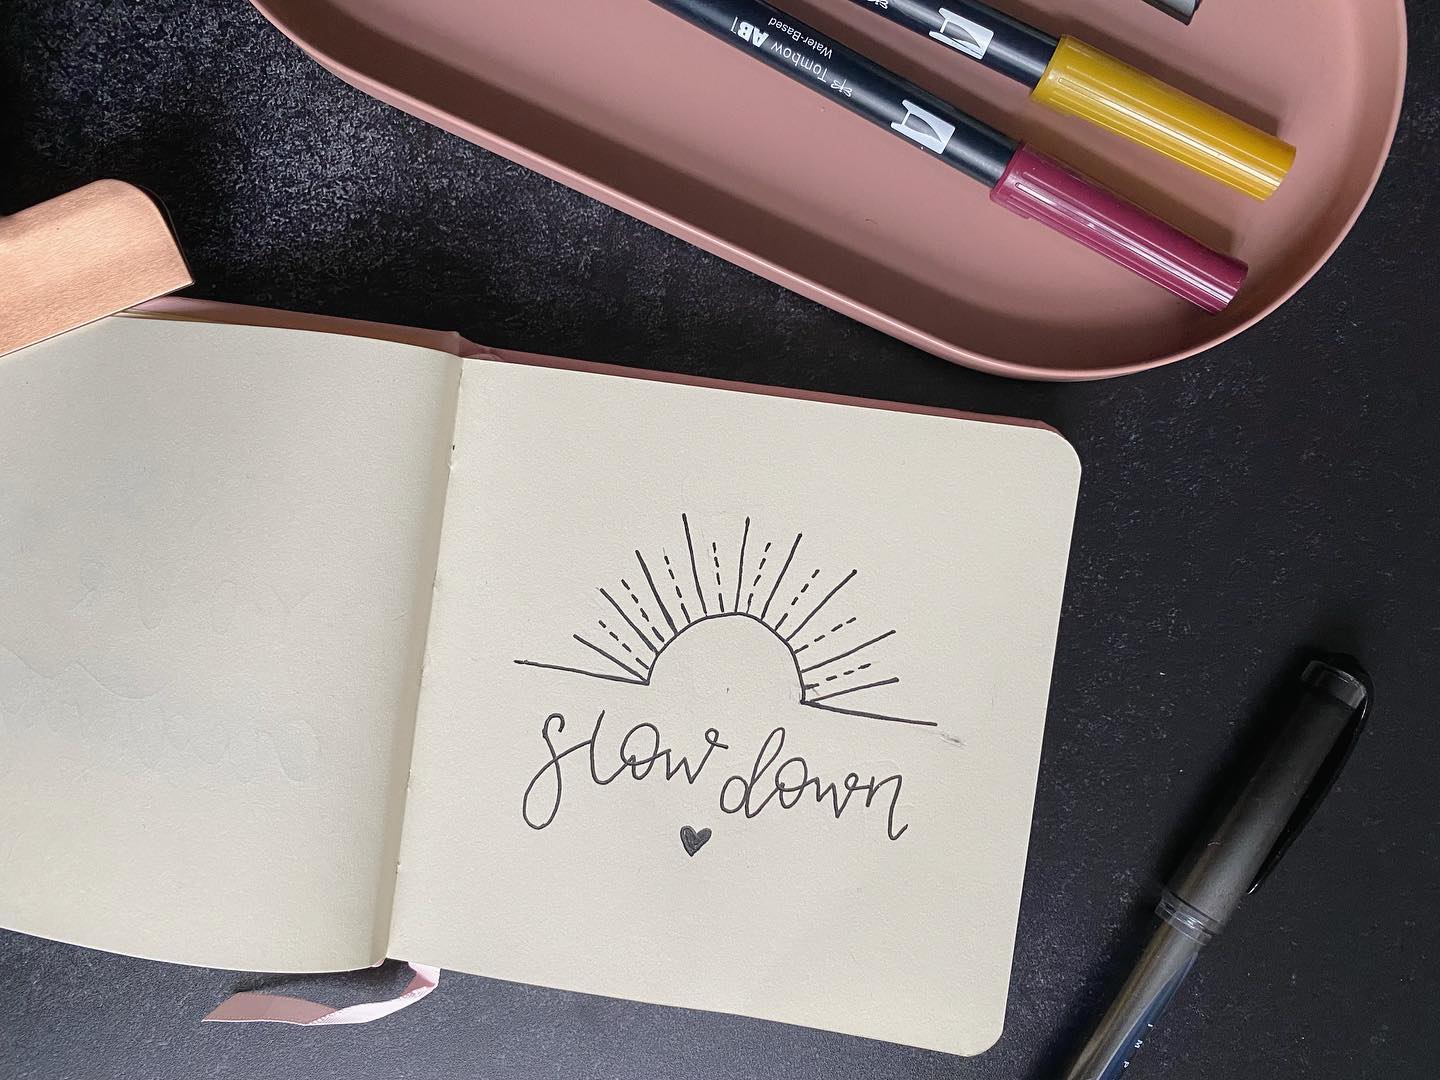 Tombow ABT
Water-Based
slow down
I M P